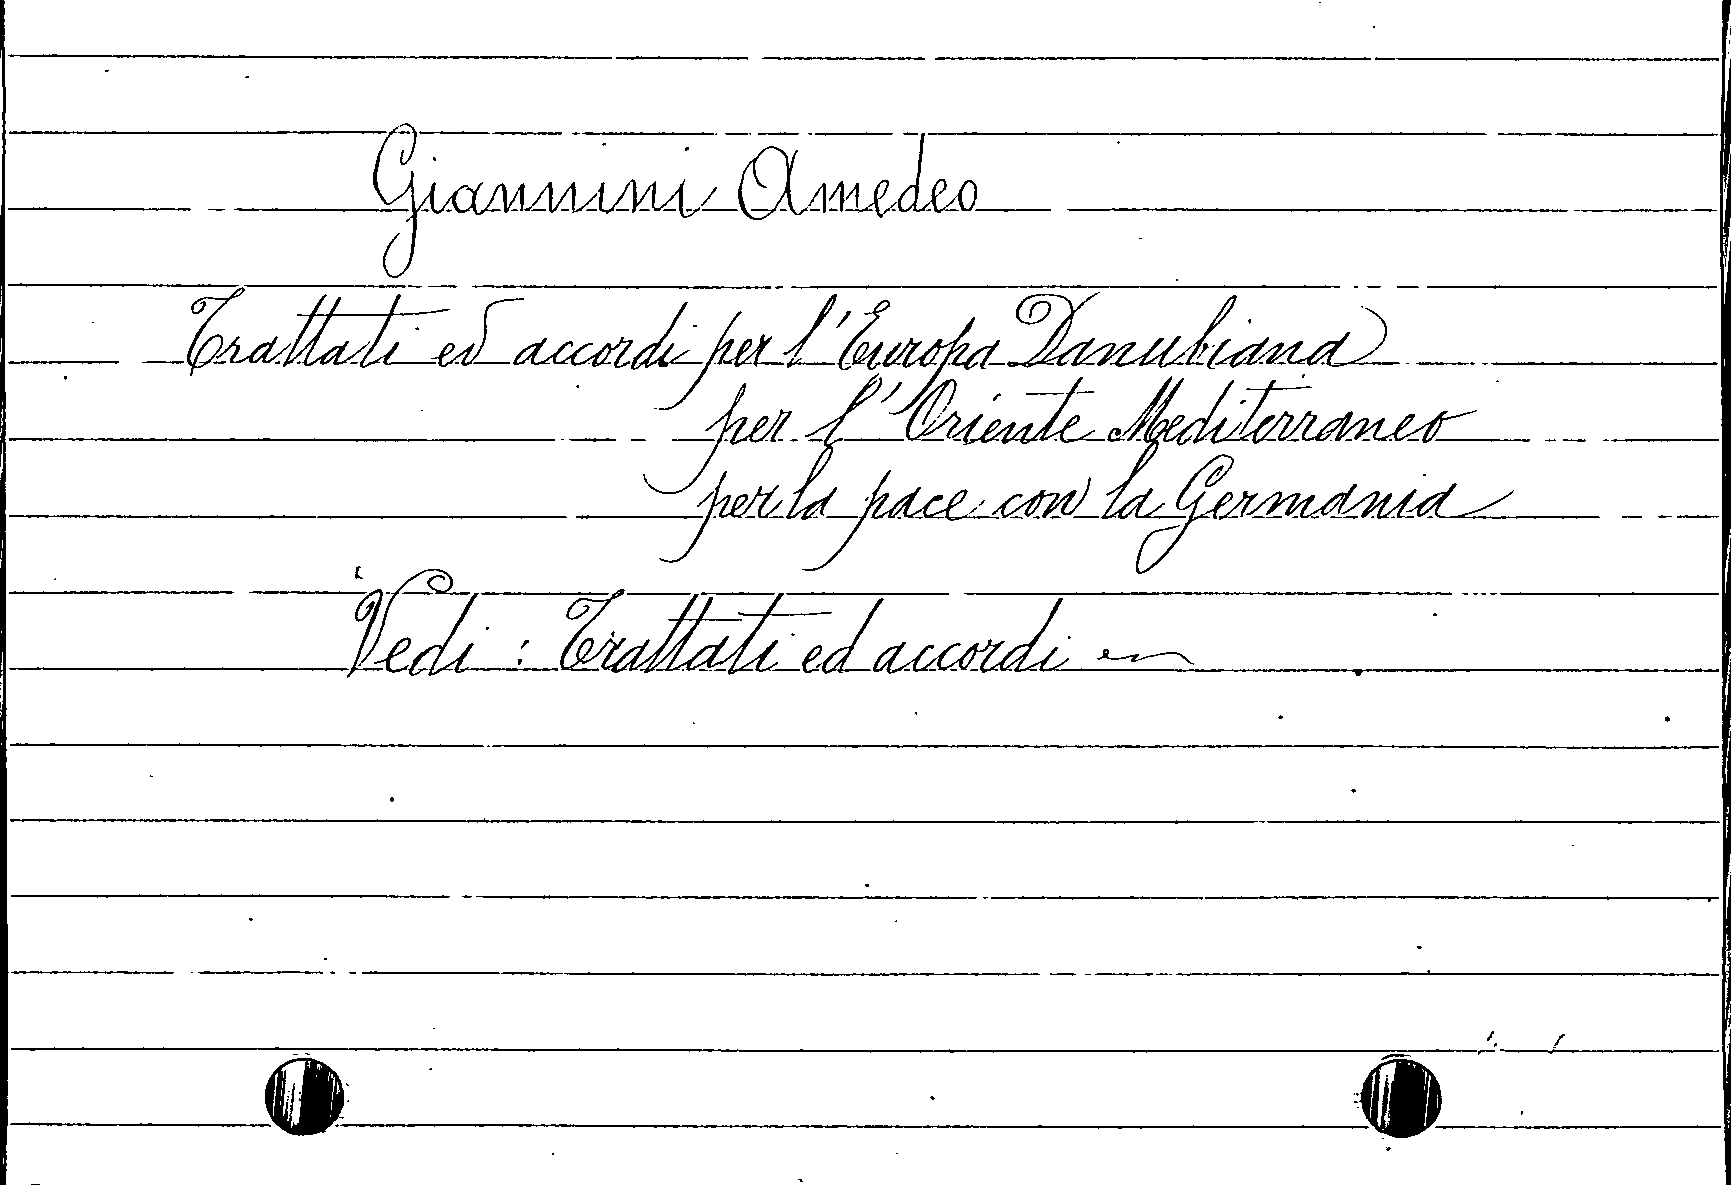 Giannini Amedeo
Trattati ed accordi per l'Europa Danubiana
per l'Oriente Mediterraneo
per la pace con la Germania
Vedi : Trattati ed accordi